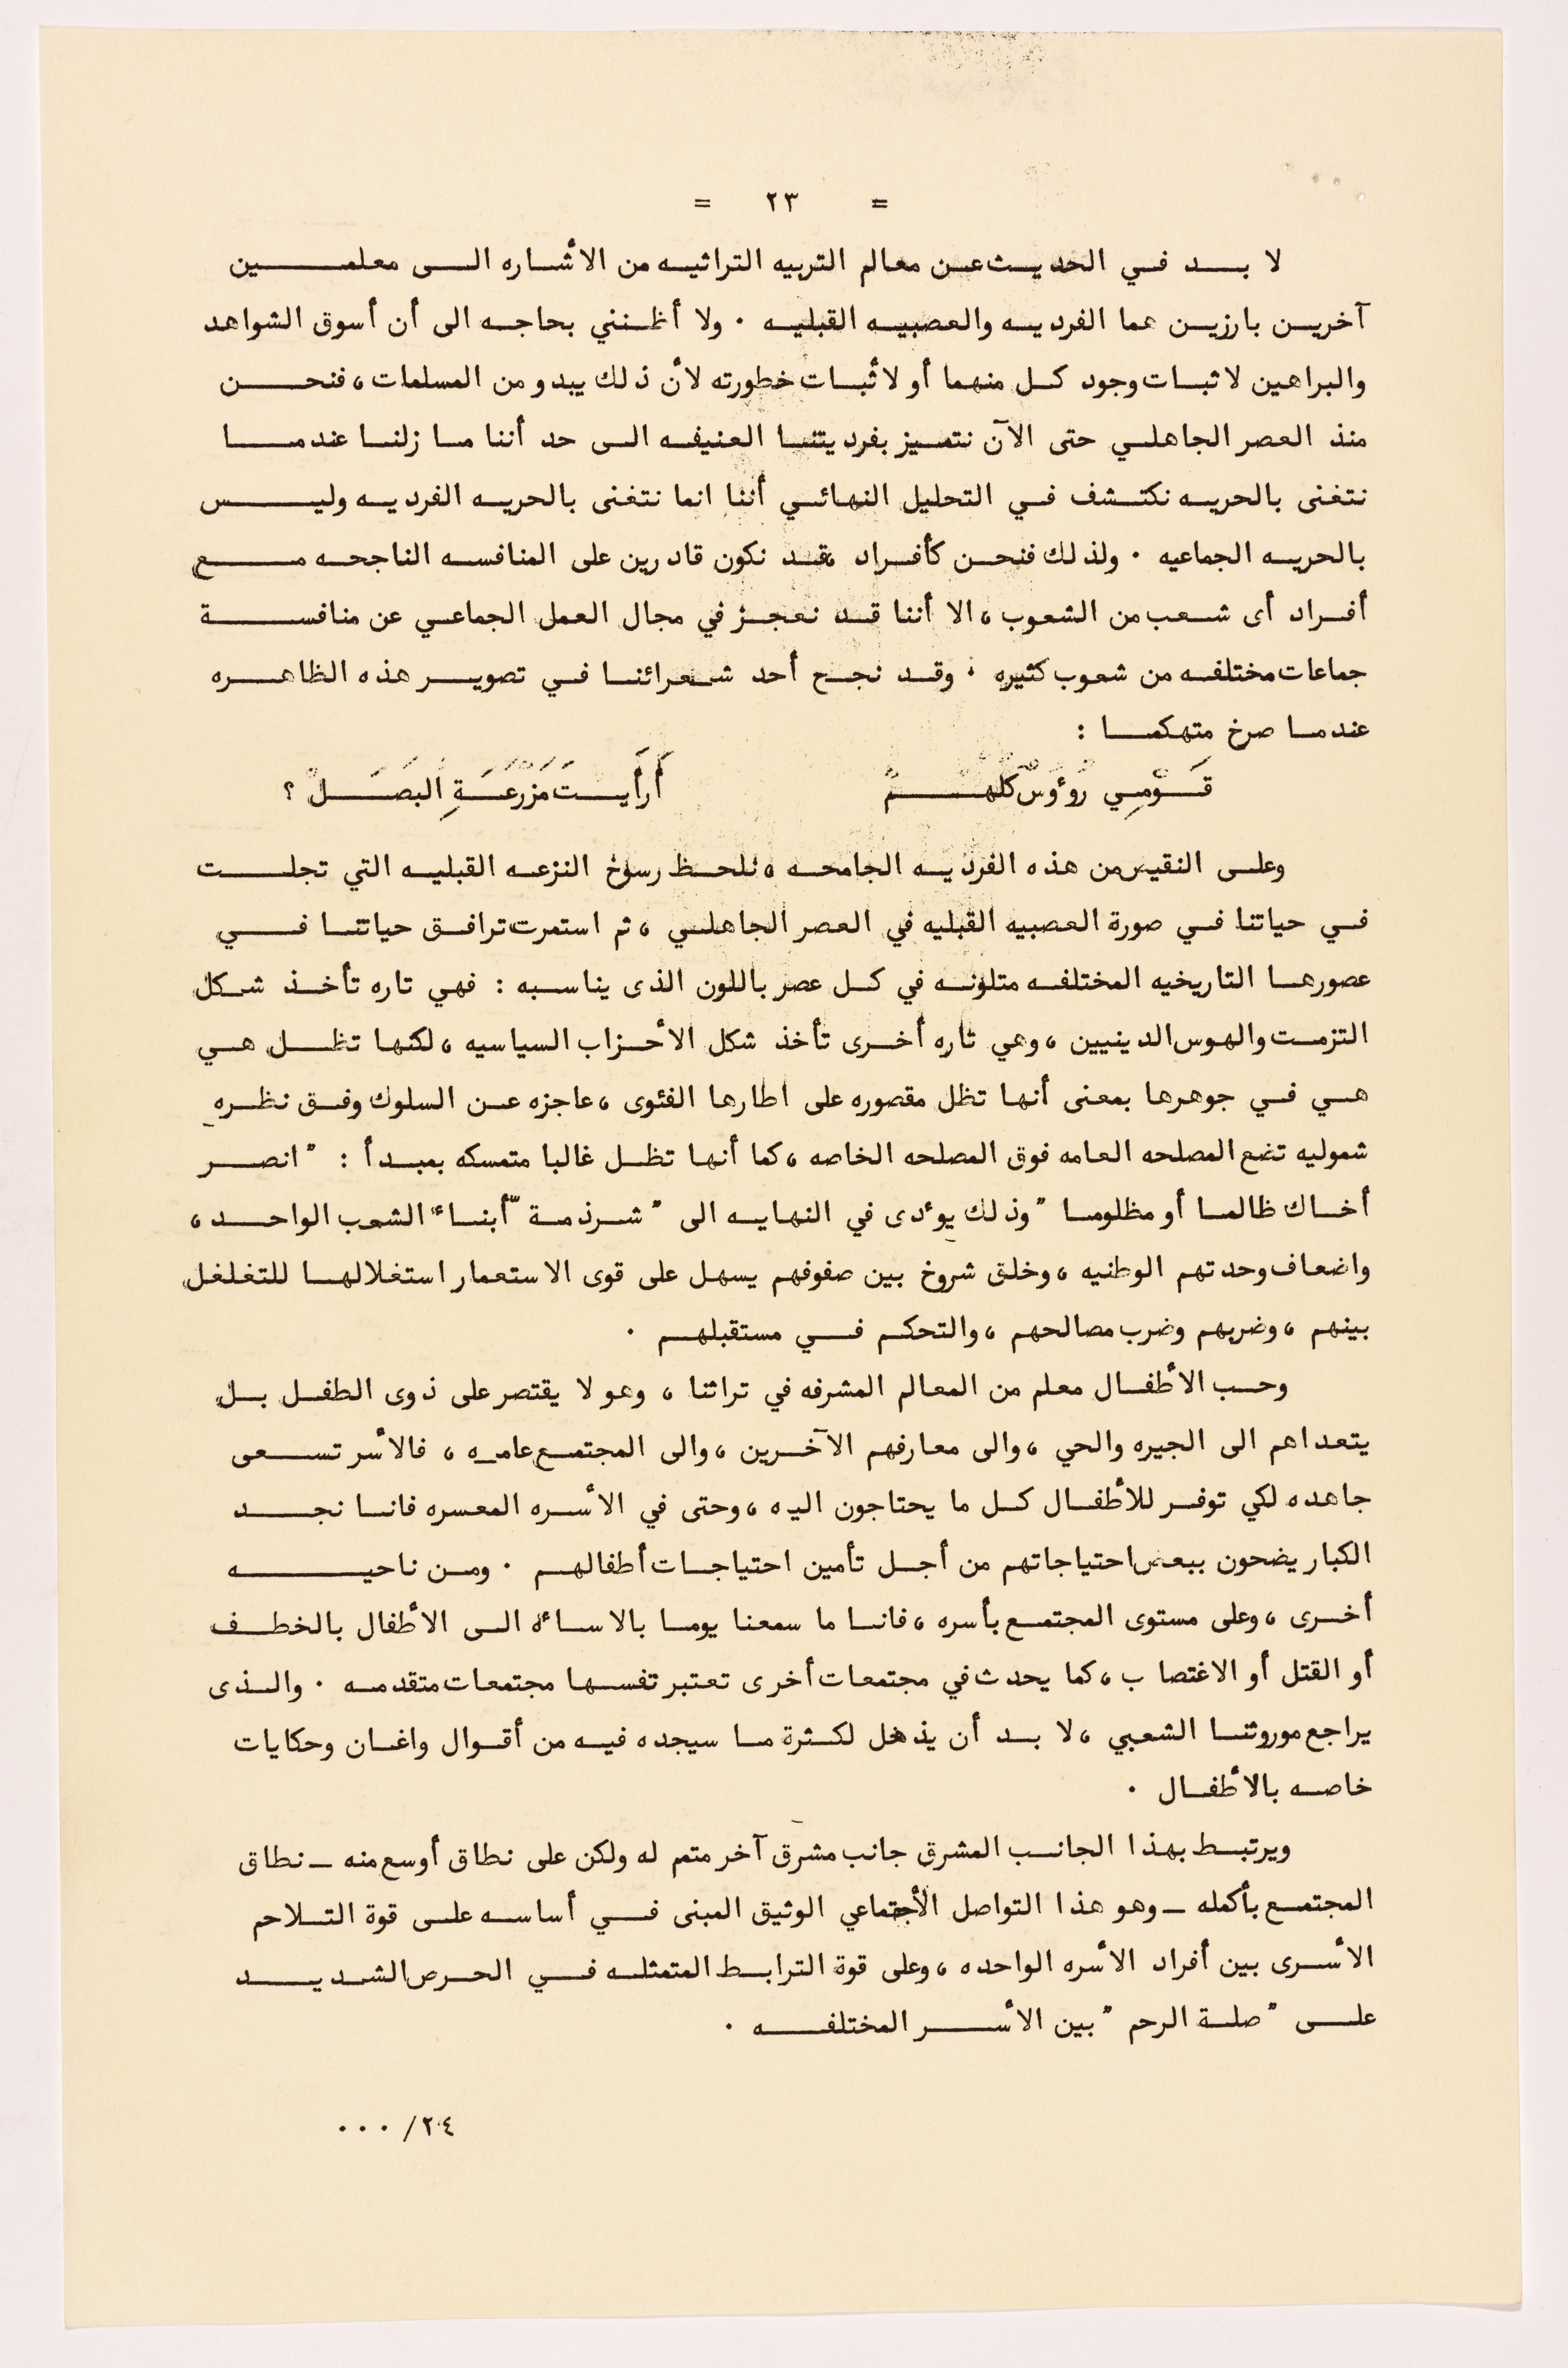 = ٢٣ =
لا بد في الحديث عن معالم التربيه التراثيه من الأشاره الى معلمين
آخرين بارزين هما الفرديه والعصبيه القبليه . ولا أظنني بحاجه الى أن أسوق الشواهد
والبراهين لاثبات وجود كل منهما أو لاثبات خطورته لأن ذلك يبدو من المسلمات، فنحن
منذ العصر الجاهلي حتى الآن نتميز بفرديتنا العنيفه الى حد أننا ما زلنا عندما
نتغنى بالحريه نكتشف في التحليل النهائي أننا انما نتغنى بالحريه الفرديه وليس
بالحريه الجماعيه . ولذلك فنحن كأفراد ،قد نكون قادرين على المنافسه الناجحه مع
أفراد أى شعب من الشعوب، الا أننا قد نعجز في مجال العمل الجماعي عن منافسة
جماعات مختلفه من شعوب كثيره . وقد نجح أحد شعرائنا في تصوير هذه الظاهره
عندما صرخ متهكما :
قَوْمِي رُوءُوسٌ كُلُّهُمْ أَرَأَيْتَ مَزْرَعَةِ البَصَلْ ؟
وعلى النقيض من هذه الفرديه الجامحه ، نلحظ رسوخ النزعه القبليه التي تجلت
في حياتنا في صورة العصبيه القبليه في العصر الجاهلي ، ثم استمرت ترافق حياتنا في
عصورها التاريخيه المختلفه متلونه في كل عصر باللون الذى يناسبه : فهي تاره تأخذ شكل
التزمت والهوس الدينيين ، وهي تاره أخرى تأخذ شكل الأحزاب السياسيه ، لكنها تظل هي
هي في جوهرها بمعنى أنها تظل مقصوره على اطارها الفئوى ، عاجزه عن السلوك وفق نظره
شموليه تضع المصلحه العامه فوق المصلحه الخاصه ، كما أنها تظل غالبا متمسكه بمبدأ : " انصر
أخاك ظالما أو مظلوما " وذلك يوءدى في النهايه الى " شرذمة " أبناء الشعب الواحد ،
واضعاف وحدتهم الوطنيه ، وخلق شروخ بين صفوفهم يسهل على قوى الاستعمار استغلالها للتغلغل
بينهم ، وضربهم وضرب مصالحهم ، والتحكم في مستقبلهم .
وحب الأطفال معلم من المعالم المشرفه في تراثنا ، وهو لا يقتصر على ذوى الطفل بل
يتعداهم الى الجيره والحي ، والى معارفهم الآخرين ، والى المجتمع عامه ، فالأسر تسعى
جاهده لكي توفر للأطفال كل ما يحتاجون اليه ، وحتى في الأسره المعسره فانا نجد
الكبار يضحون ببعض احتياجاتهم من أجل تأمين احتياجات أطفالهم . ومن ناحيه
أخرى ، وعلى مستوى المجتمع بأسره ، فانا ما سمعنا يوما بالاساءه الى الأطفال بالخطف
أو القتل أو الاغتصاب ، كما يحدث في مجتمعات أخرى تعتبر نفسها مجتمعات متقدمه . والذى
يراجع موروثنا الشعبي ، لا بد أن يذهل لكثرة ما سيجده فيه من أقوال واغان وحكايات
خاصه بالأطفال .
ويرتبط بهذا الجانب المشرق جانب مشرق آخر متمم له ولكن على نطاق أوسع منه - نطاق
المجتمع بأكمله - وهو هذا التواصل الأجتماعي الوثيق المبنى في أساسه على قوة التلاحم
الأسرى بين أفراد الأسره الواحده ، وعلى قوة الترابط المتمثله في الحرص الشديد
على " صلة الرحم " بين الأسر المختلفه .
٢٤/ ...